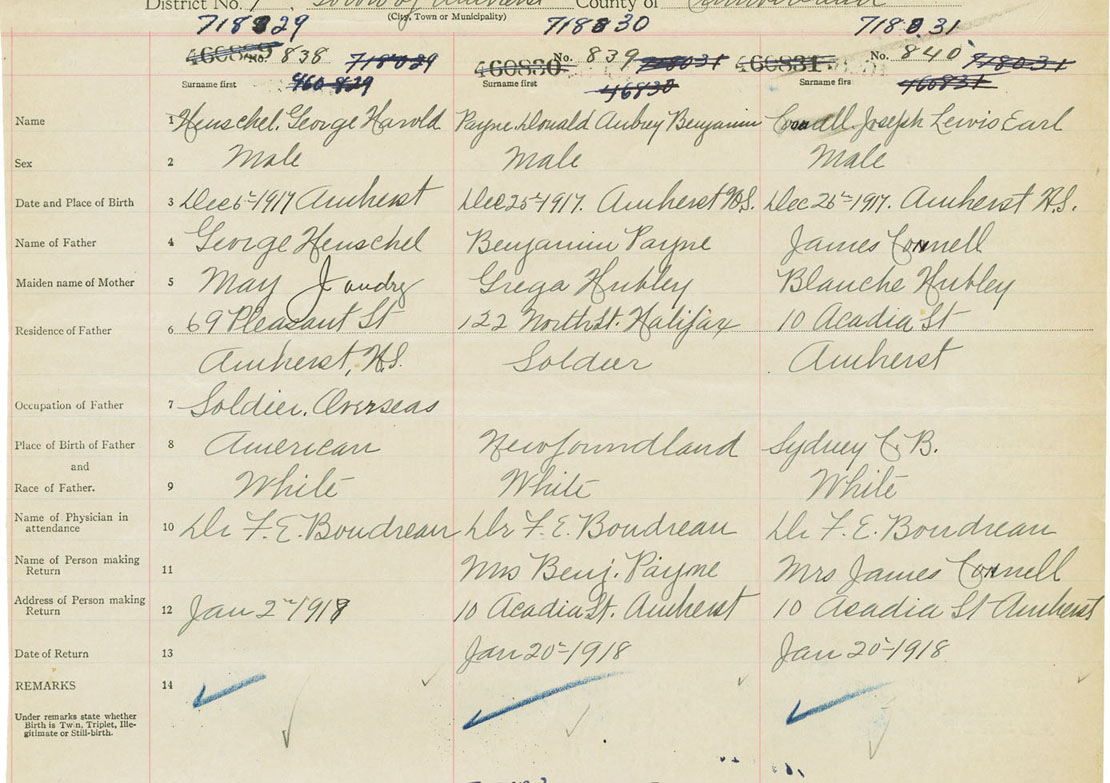 District No. 7 Town of Amherst County of Cumberland
(City, Town or Municipality)
718829 718830 718831
No. 838 718029 460830 No. 839 718031 460831 No. 840 718031
Surname first 460829 Surname first 46830 Surname firs 460831
Name 1 Henschel. George Harold Payne. Donald Aubrey Benjamin Joseph Lewis Earl
Sex 2 Male Male Male
Date and Place of Birth 3 Dec 6th 1917 Amherst Dec 25th 1917. Amherst N.S. Dec 26th 1917. Amherst N.S.
Name of Father 4 George Henschel Benjamin Payne James Connell
Maiden name of Mother 5 May Jaudry Grega Hubley Blanche Hubley
Residence of Father 6 69 Pleasant St 122 North St. Halifax 10 Acadia St
Amherst, N.S. Soldier Amherst
Occupation of Father 7 Soldier. Overseas
Place of Birth of Father 8 American Newfoundland Sydney C. B.
and
Race of Father. 9 White White White
Name of Physician in
attendance 10 Dr F. E. Boudreau Dr F. E. Boudreau Dr F. E. Boudreau
Name of Person making
Return 11 Mrs Benj. Payne Mrs James Connell
Address of Person making
Return 12 Jan 2nd 1918 10 Acadia St. Amherst 10 Acadia St Amherst
Date of Return 13 Jan 20th 1918 Jan 20th 1918
REMARKS 14
Under remarks state whether
Birth is Twin, Triplet, Ille-
gitimate or Still-birth.